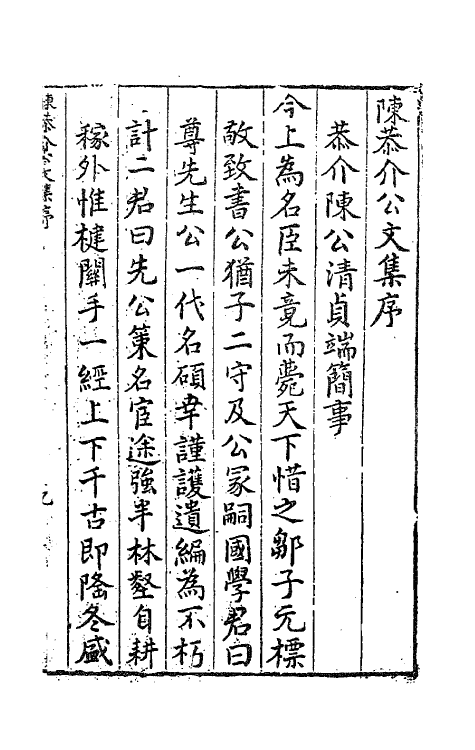 陳恭介公文集序
恭介陳公清貞端簡事
今上為名臣未竟而薨天下惜之鄒子元標
敬致書公猶子二守及公冢嗣國學君曰
尊先生公一代名碩幸謹護遺編為不朽
計二君曰先公策名宦途強半林壑自耕
稼外惟楗關手一經上下千古即隆冬盛
陳恭介公文集序